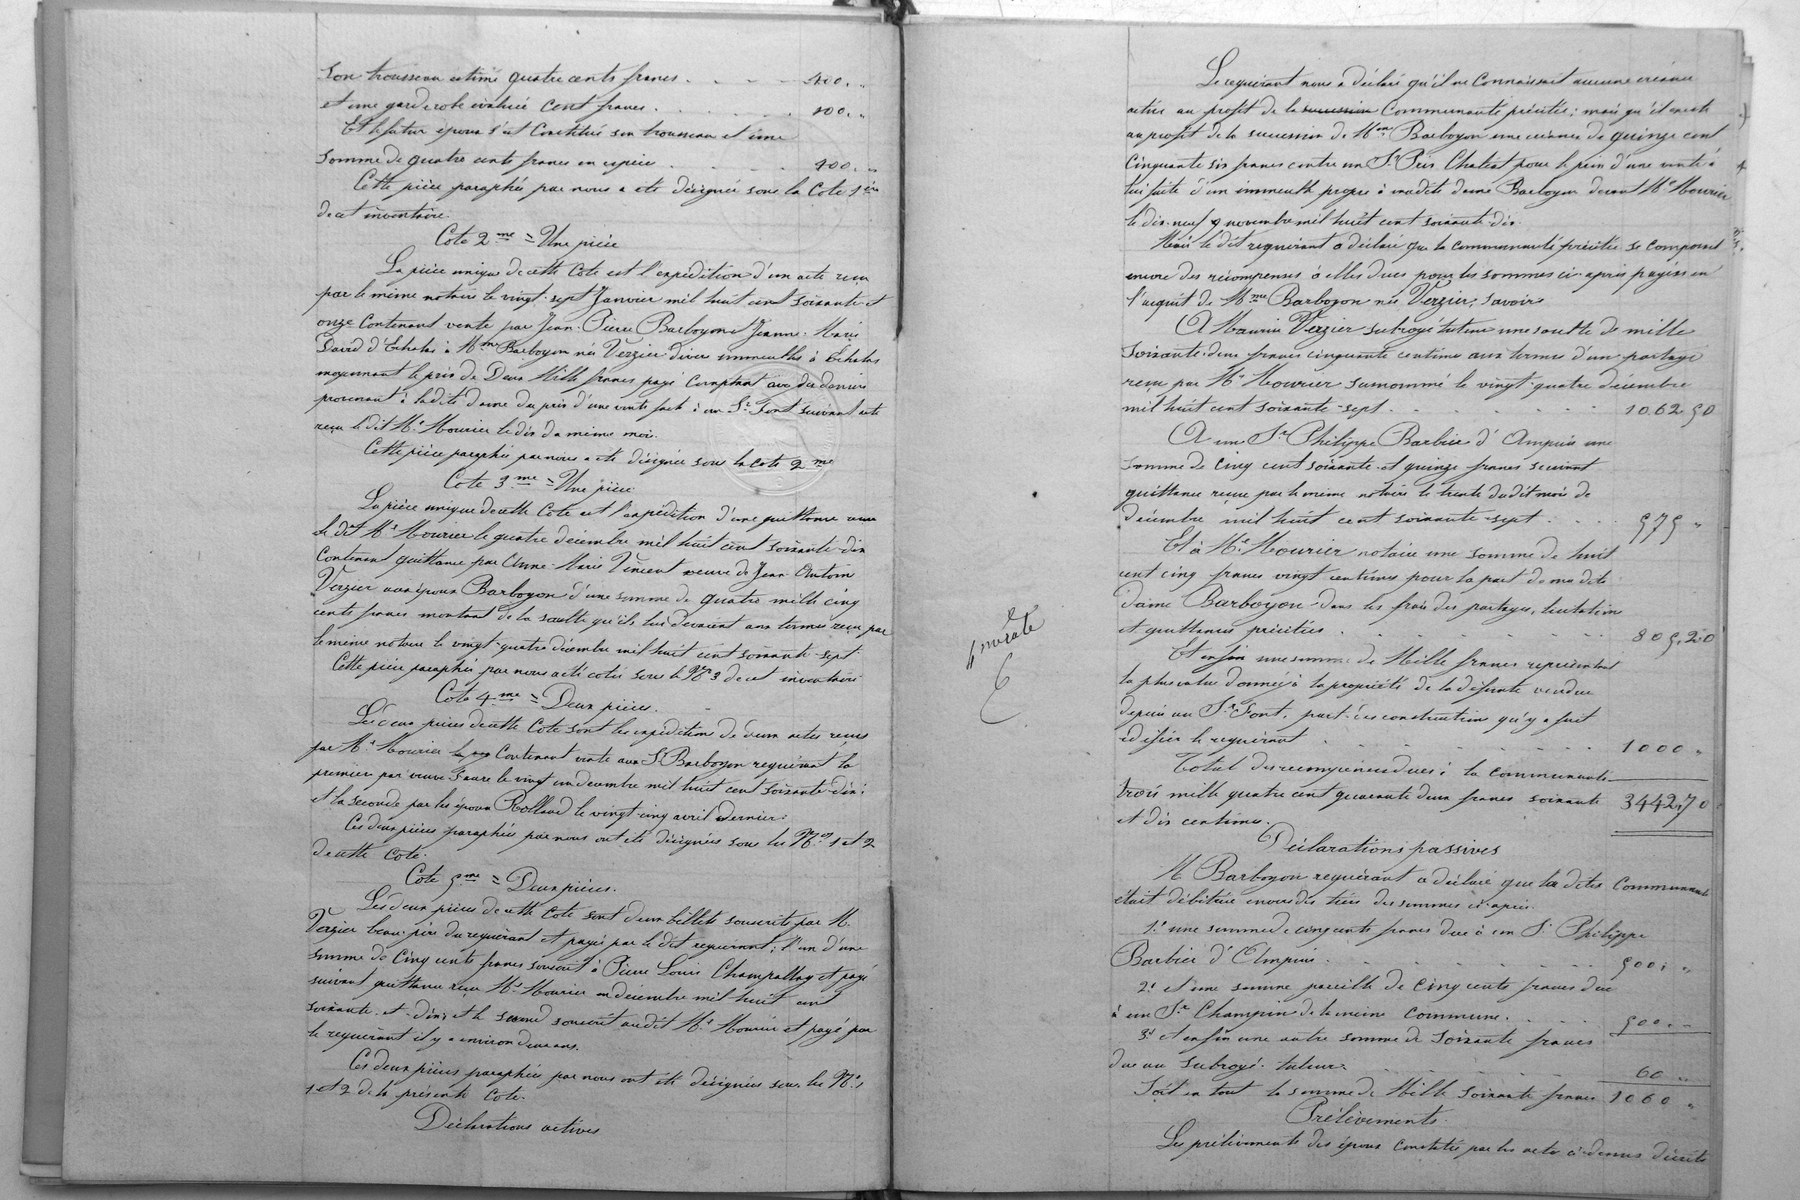 Son trousseau estimé quatre cents francs . . . . 400 . "
et une garde robe évaluée cent francs . . . . 100 . "
Et le futur époux s'est constitué son trousseau et une
somme de quatre cents francs en espèces . . . . 400 . "
Cette pièce paraphée par nous a été désignée sous la Cote 1ère
de cet inventaire.
Cote 2me = Une pièce
La pièce unique de cette Cote est l'expédition d'un acte reçu
par le même notaire le vingt-sept Janvier mil huit cent soixante et
onze Contenant vente par Jean-Pierre Barboyon et Jeanne-Marie
David d'Echalas à Mme Barboyon née Verzier divers immeubles à Echalas
moyennant le prix de Deux Mille francs payé Comptant avec des deniers
provenant à ladite dame du prix d'une vente faite à un Sr Font suivant acte
reçu le dit Me Mourier le dix du même mois.
Cette pièce paraphée par nous a été désignée sous la Cote 2me
Cote 3me = Une pièce
La pièce unique de cette Cote est l'expédition d'une quittance reçue
le dit Me Mourier le quatre décembre mil huit cent soixante-dix
Contenant quittance par Anne-Marie Vincent veuve de Jean Antoine
Verzier aux époux Barboyon d'une somme de quatre mille cinq
cents francs montant de la soulte qu'ils lui devaient aux termes reçu par
le même notaire le vingt-quatre décembre mil huit cent soixante-sept.
Cette pièce paraphée par nous a été cotée sous le No 3 de cet inventaire
Cote 4me = Deux pièces.
Les deux pièces de cette Cote sont les expéditions de deux actes reçus
par Me Mourier Contenant vente aux Sr Barboyon requérant la
première par veuve Faure le vingt un décembre mil huit cent soixante-dix;
et la seconde par les époux Rolland le vingt-cinq avril dernier.
Ces deux pièces paraphées par nous ont été désignées sous les Nos 1 et 2
de cette Cote.
Cote 5me = Deux pièces.
Les deux pièces de cette Cote sont deux billets souscrits par M.
Verzier beau-père du requérant et payés par le dit requérant; l'un d'une
somme de Cinq cents francs souscrit à Pierre Louis Champallay et payé
suivant quittance reçue Me Mourier en décembre mil huit cent
soixante-et-dix; et le second souscrit audit Me Mourier et payé par
le requérant il y a environ deux ans.
Ces deux pièces paraphées par nous ont été désignées sous les Nos
1 et 2 de la présente Cote.
Déclarations actives
Le requérant nous a déclaré qu'il ne Connaissait aucune créance
active au profit de la succession Communauté précitée; mais qu'il existe
au profit de la succession de Mme Barboyon une créance de quinze cent
Cinquante six francs contre un Sr Chatrat pour le prix d'une vente à
lui faite d'un immeuble propre à madite dame Barboyon devant Me Mourier
le dix-neuf 9 novembre mil huit cent soixante-dix.
Mais le dit requérant a déclaré que la Communauté précitée se Composait
encore des récompenses à elles dues pour les sommes ci-après payées en
l'acquit de Mme Barboyon née Verzier, savoir
A Maurice Verzier subrogé tuteur une soulte de mille
soixante-deux francs cinquante centimes aux termes d'un partage
reçu par Me Mourier susnommé le vingt-quatre décembre
mil huit cent soixante-sept . . . . 1062.50
A un Sr Philippe Barbier d'Ampuis une
somme de Cinq cent soixante-et quinze francs suivant
quittance reçue par le même notaire le trente dudit mois de
décembre mil huit cent soixante-sept . . . . 575 "
Et à Me Mourier notaire une somme de huit
cent cinq francs vingt centimes pour la part de madite
Dame Barboyon dans les frais des partages, licitation
et quittances précitées . . . . 805.20
Et enfin une somme de Mille francs représentant
la plus value donnée à la propriété de la défunte vendue
depuis au Sr Font, par des constructions qu'y a fait
édifier le requérant . . . . 1000 "
Total des récompenses dues à la Communauté
trois mille quatre cent quarante deux francs soixante 3442,70
et dix centimes.
Déclarations passives
M Barboyon requérant a déclaré que ladite Communauté
était débitrice envers des tiers des sommes ci-après.
1° une somme de cinq cents francs due à un Sr Philippe
Barbier d'Ampuis . . . . 500 . "
2° et une somme pareille de Cinq cents francs due
à un Sr Champin de la même Commune . . . . 500 . "
3° et enfin une autre somme de soixante francs
due au subrogé-tuteur . . . . 60 "
Soit en tout la somme de Mille soixante francs 1060 "
Prélèvements.
Les prélèvements des époux constatés par les actes ci-dessus décrits